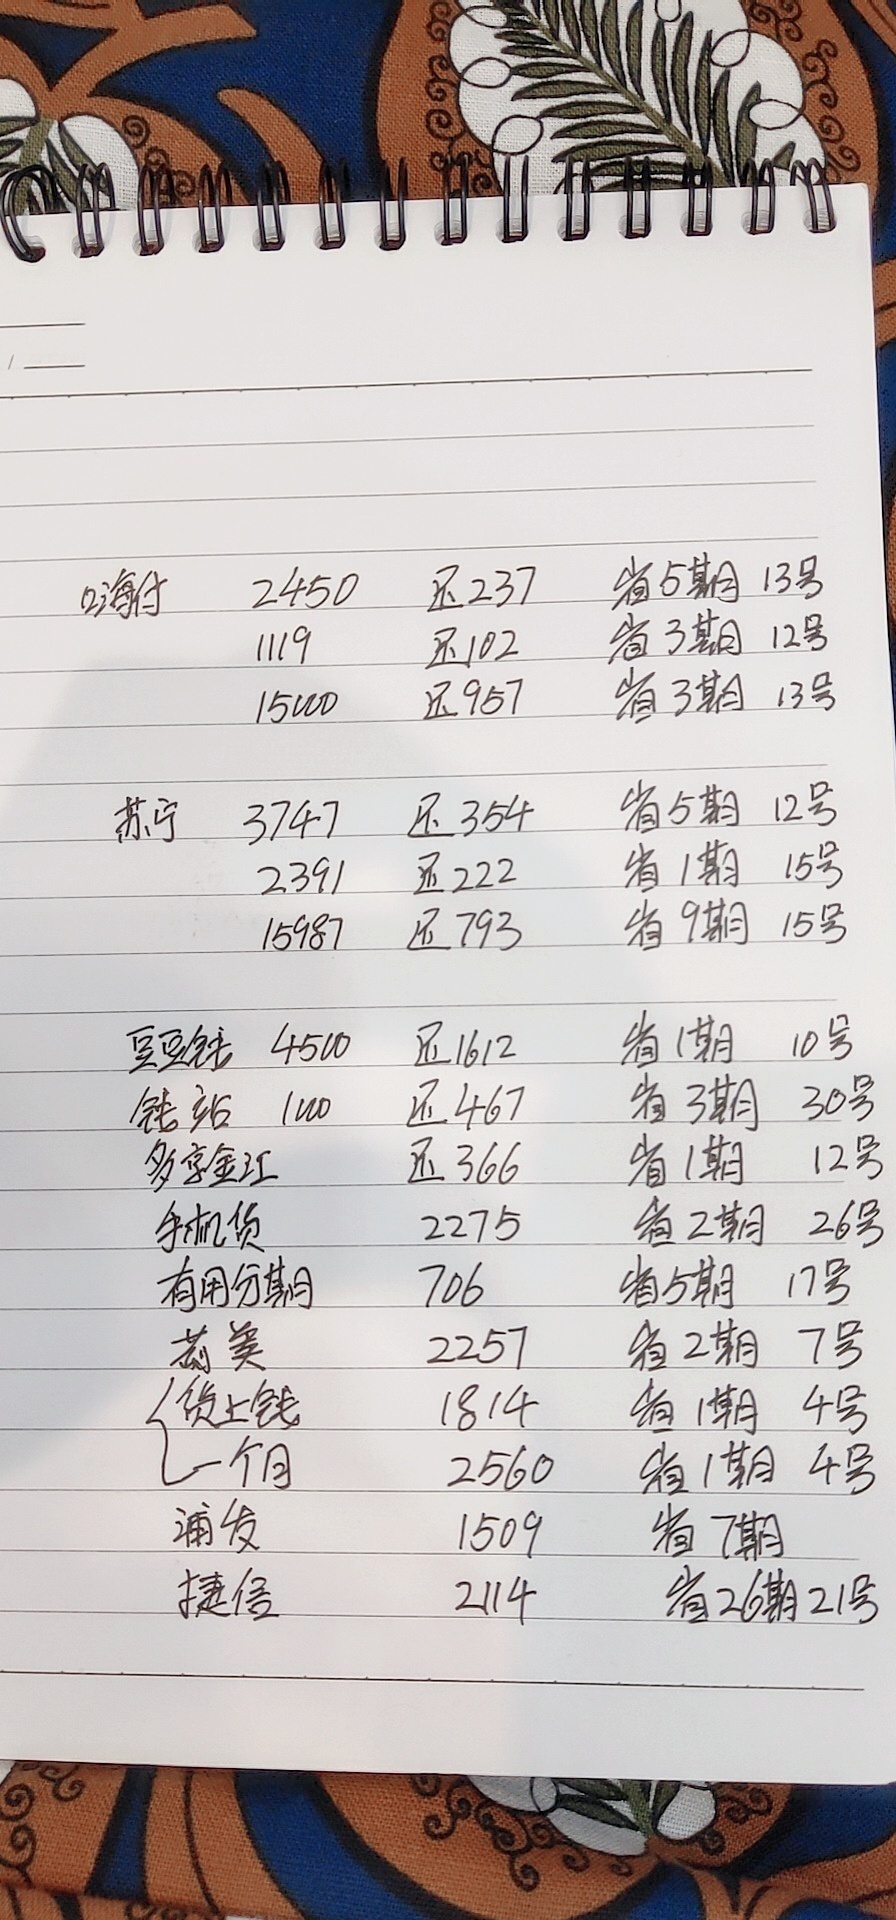 嗨付 2450 还237 省5期 13号
1119 还102 省3期 12号
15000 还957 省3期 13号
苏宁 3747 还354 省5期 12号
2391 还222 省1期 15号
15987 还793 省9期 15号
豆豆钱 4500 还1612 省1期 10号
钱站 1000 还467 省3期 30号
多享金江 还366 省1期 12号
手机货 2275 省2期 26号
有用分期 706 省5期 17号
2257 省2期 7号
货上钱 1814 省1期 4号
一个月 2560 省1期 4号
浦发 1509 省7期
捷信 2114 省26期 21号